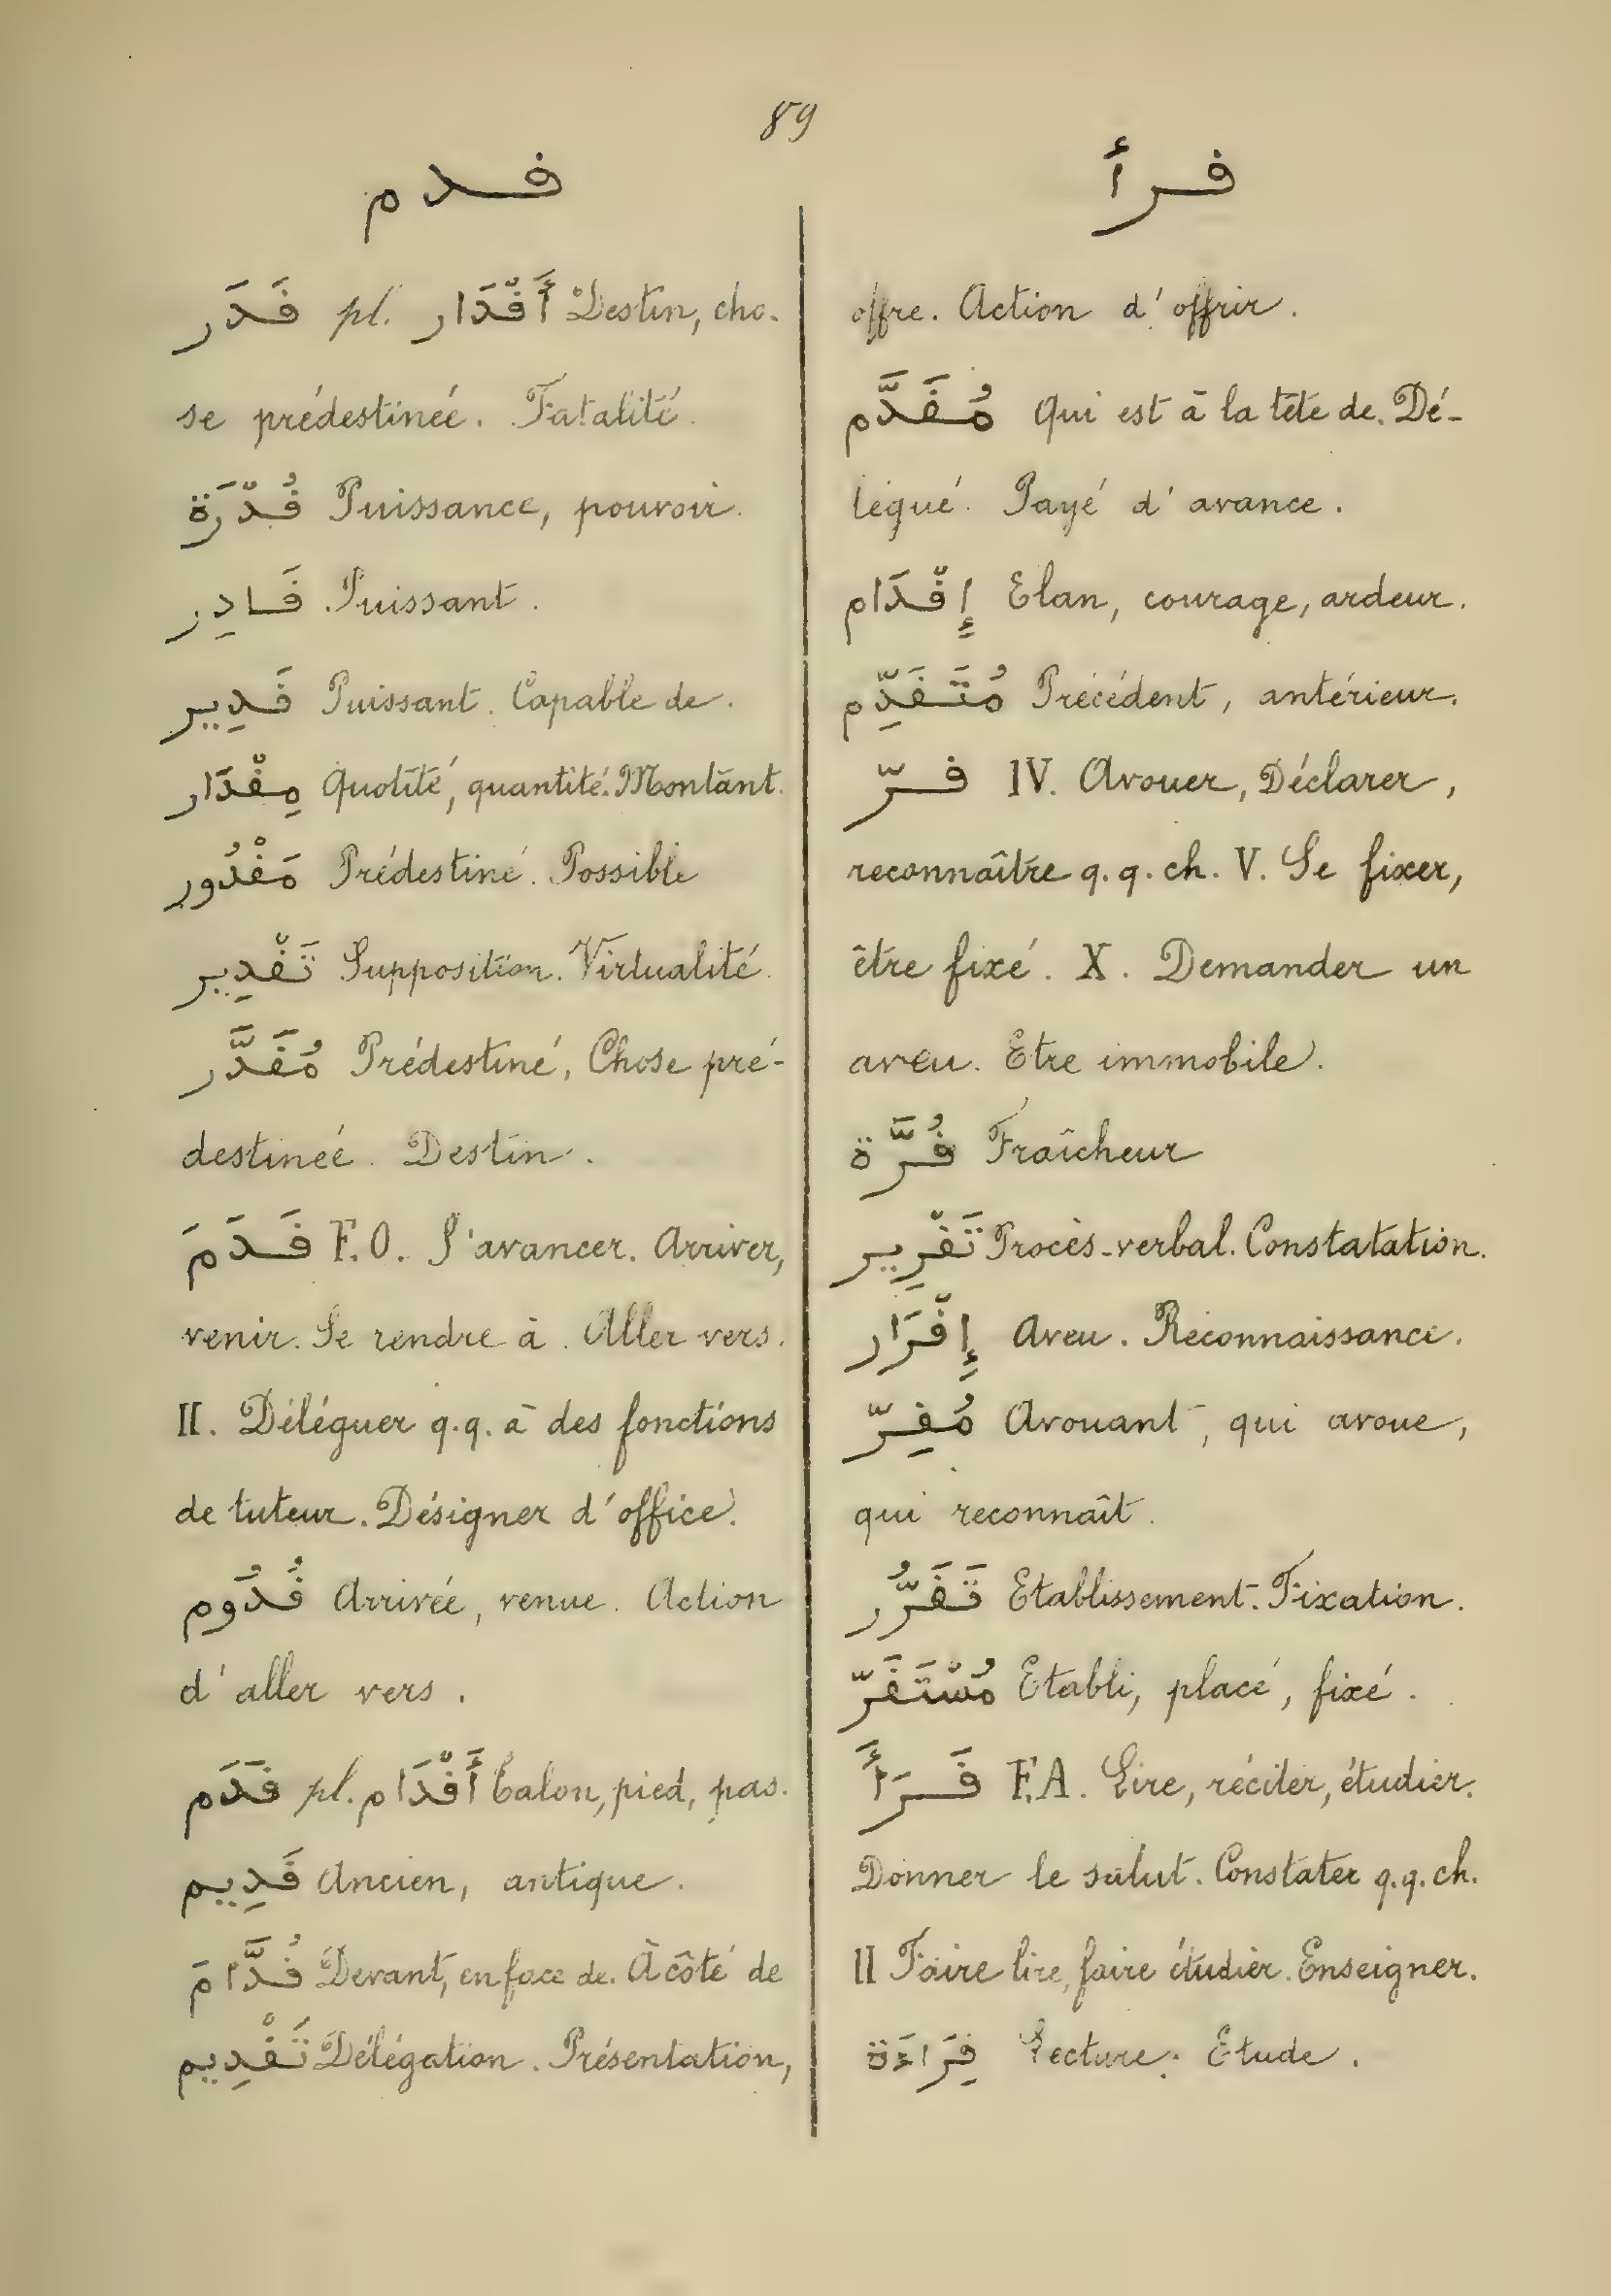 89
قدم
قرأ
قَدَر pl. أَقْدَار Destin, cho-
se prédestinée. Fatalité.
قُدْرَة Puissance, pouvoir.
قَادِر Puissant.
قَدِير Puissant. Capable de.
مِقْدَار Quotité, quantité. Montant.
مَقْدُور Prédestiné. Possible
تَقْدِير Supposition. Virtualité.
مُقَدَّر Prédestiné, Chose pré-
destinée. Destin.
قَدَمَ F.O. S'avancer. Arriver,
venir. Se rendre à. Aller vers.
II. Déléguer q.q. à des fonctions
de tuteur. Désigner d'office.
قُدُوم Arrivée, venue. Action
d'aller vers.
قَدَم pl. أَقْدَام Talon, pied, pas.
قَدِيم Ancien, antique.
قُدَّامَ Devant, en face de. À côté de
تَقْدِيم Délégation. Présentation,
offre. Action d'offrir.
مُقَدَّم Qui est à la tête de. Dé-
légué. Payé d'avance.
إِقْدَام Elan, courage, ardeur.
مُتَقَدِّم Précédent, antérieur.
قرّ IV. Avouer, Déclarer,
reconnaître q.q.ch. V. Se fixer,
être fixé. X. Demander un
aveu. Etre immobile.
قُرَّة Fraîcheur
تَقْرِير Procès-verbal. Constatation.
إِقْرَار Aveu. Reconnaissance.
مُقِرّ Avouant, qui avoue,
qui reconnaît.
تَقَرُّر Etablissement. Fixation.
مُسْتَقَرّ Etabli, placé, fixé.
قَرَأَ F.A. Lire, réciter, étudier.
Donner le salut. Constater q.q.ch.
II Faire lire, faire étudier. Enseigner.
قِرَاءَة Lecture. Etude.